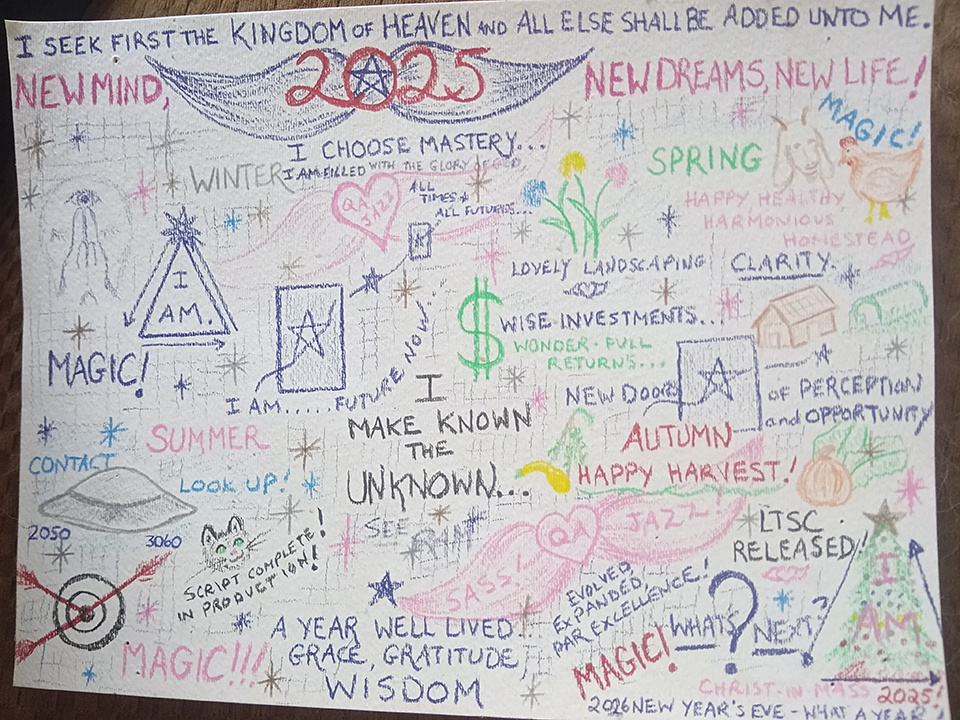 I SEEK FIRST THE KINGDOM OF HEAVEN AND ALL ELSE SHALL BE ADDED UNTO ME.
NEW MIND,
2025
NEW DREAMS, NEW LIFE!
I CHOOSE MASTERY...
WINTER
I AM FILLED WITH THE GLORY OF GOD
QA
J/22
ALL
TIMES +
ALL FUTURES...
SPRING
MAGIC!
HAPPY HEALTHY
HARMONIOUS
HOMESTEAD
LOVELY LANDSCAPING
CLARITY.
I
AM..
MAGIC!
I AM.....FUTURE NOW...
$ WISE INVESTMENTS...
WONDER-FULL
RETURNS...
NEW DOORS
OF PERCEPTION
and OPPORTUNITY
I
MAKE KNOWN
THE
UNKNOWN...
SUMMER
AUTUMN
HAPPY HARVEST!
CONTACT
LOOK UP!
2050
3060
SEE
SCRIPT COMPLETE!
IN PRODUCTION!
SASS!
QA
JAZZ!
LTSC
RELEASED!
EVOLVED,
EXPANDED,
PAR EXCELLENCE!
A YEAR WELL LIVED
GRACE, GRATITUDE
WISDOM
MAGIC!!!
MAGIC!
WHATS
NEXT?
I
AM
CHRIST-IN-MASS 2025!
2026 NEW YEAR'S EVE - WHAT A YEAR!